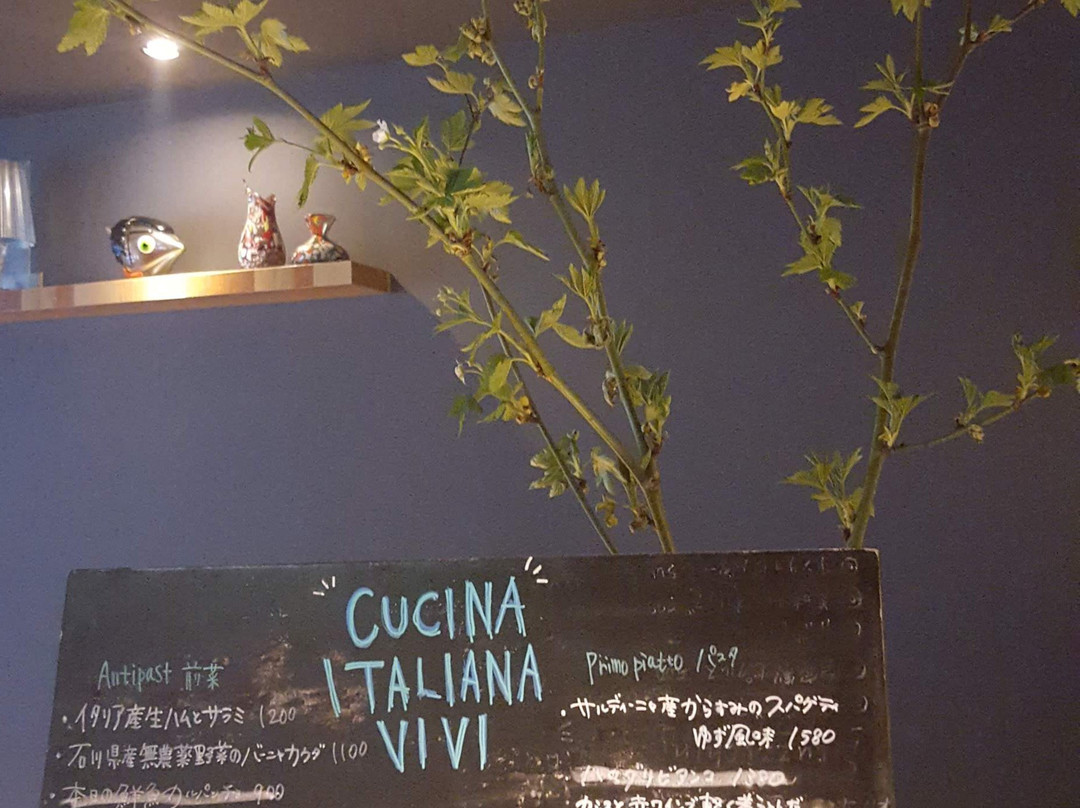 CUCINA
ITALIANA
VIVI
Antipast 前菜
・イタリア産生ハムとサラミ 1200
・石川県産無農薬野菜のバーニャカウダ 1100
・本日の鮮魚のカルパッチョ 900
Primo piatto パスタ
・サルディーニャ産からすみのスパゲティ
ゆず風味 1580